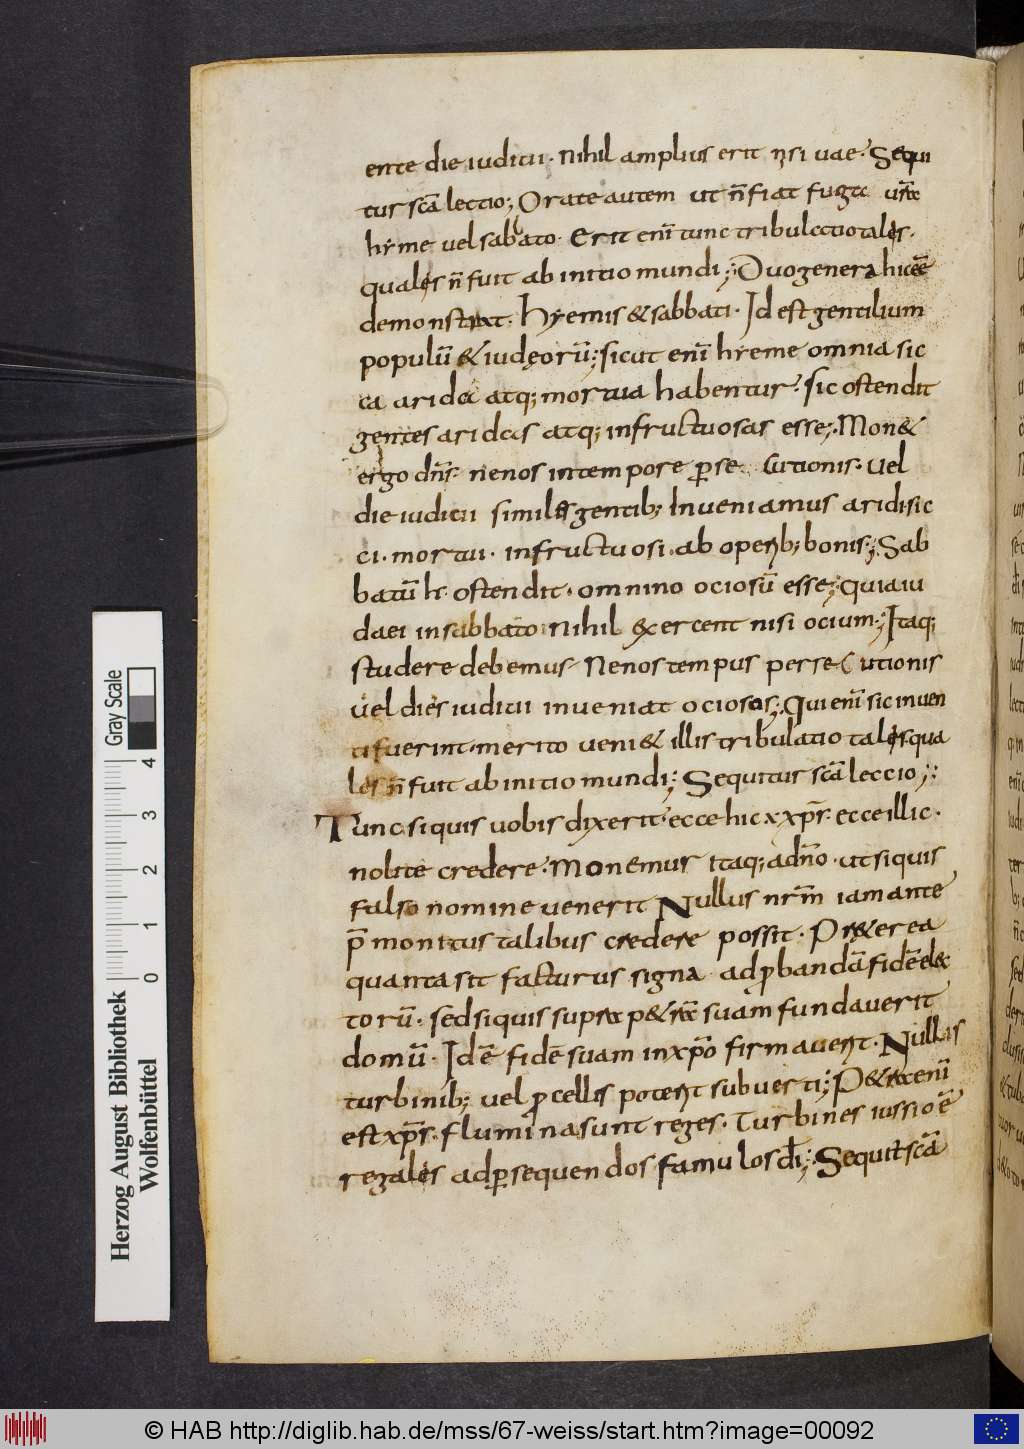 ente die iudicii. nihil amplius erit nisi uae. Sequi
tur scā lectio; Orate autem ut n̄ fiat fuga
hẏeme uel sabbato. Erit enī tunc tribulatio talis.
quales n̄ fuit ab initio mundi; Duo genera hic
demonstrat. hẏemis & sabbati. Id est gentilium
populū & iudęorū; sicut enī hẏeme omnia sic
ca arida atq; mortua habentur. sic ostendit
gentes aridas atq; infructuosas esse; Mon&
ergo dn̄s. ne nos in tempore ꝑsecutionis. uel
die iudicii similes gentib; inueniamus aridi sic
ci. mortui. infructuosi. ab operib; bonis; Sab
batū ostendit. omnino ociosū esse; quia iu
daei in sabbato nihil exercent nisi ocium; Itaq;
studere debemus. Ne nos tempus persecutionis
uel dies iudicii inueniat ociosos; Qui enī sic inuen
ti fuerint. merito ueni& illis tribulatio talis qua
les n̄ fuit ab initio mundi; Sequitur scā leccio;
Tunc si quis uobis dixerit. ecce hic xp̄s. ecce illic.
nolite credere. Monemur itaq; a dn̄o. ut si quis
falso nomine uenerit Nullus nr̄m iam ante
p̄monitus talibus credere possit. Pr&erea
quanta sit facturus signa ad ꝓbandā fidē elec
torū. sed si quis supra p&rā suam fundauerit
domū. Id ē fidē suam in xp̄o firmauerit. Nullis
turbinib; uel ꝓcellis poterit subuerti; P&ra enī
est xp̄s. flumina sunt reges. Turbines iussio ē
regalis ad ꝑsequendos famulos dī; Sequit scā
Gray Scale
0 1 2 3 4
Herzog August Bibliothek
Wolfenbüttel
© HAB http://diglib.hab.de/mss/67-weiss/start.htm?image=00092